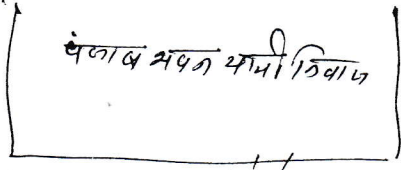 पंजाब भवन यात्री निवास